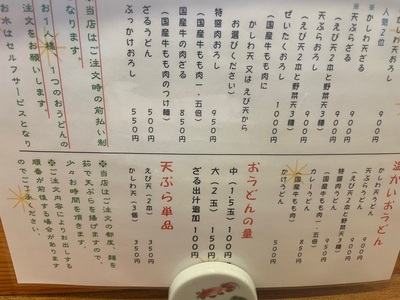 かしわ天おろし
人気２位
９００円
※かしわ天ざる
９００円
※天ぷらざる
（えび天２本と野菜天３種）
９００円
天ぷらおろし
（えび天２本と野菜天３種）
９００円
ぜいたくおろし
（国産牛もも肉に
かしわ天 又は えび天から
お選びください）
特盛肉おろし
９５０円
（国産牛もも肉一・五倍）
国産牛の肉ざる
８５０円
（国産牛もも肉のつけ麺）
ざるうどん
５００円
ぶっかけおろし
５５０円
※当店はご注文時の前払い制
なります。
お１人様、１つのおうどんの
注文をお願いします。
お水はセルフサービスとなり
温かいおうどん
かしわ天うどん
天ぷらうどん
（えび天２本と野菜天３種）
特盛肉うどん
９５０円
（国産牛もも肉一・五倍）
カレーうどん
９５０円
（国産牛もも肉）
かけうどん
おうどんの量
中（１・５玉）１００円
大（２玉）１５０円
ざる出汁追加１００円
天ぷら単品
えび天（２本）３５０円
かしわ天（３個）３５０円
※当店はご注文の都度、麺を
茹で天ぷらを揚げますので、
少々お時間を頂きます。
※ご注文内容によりお出しする
順番が前後する場合があります
のでご了承ください。